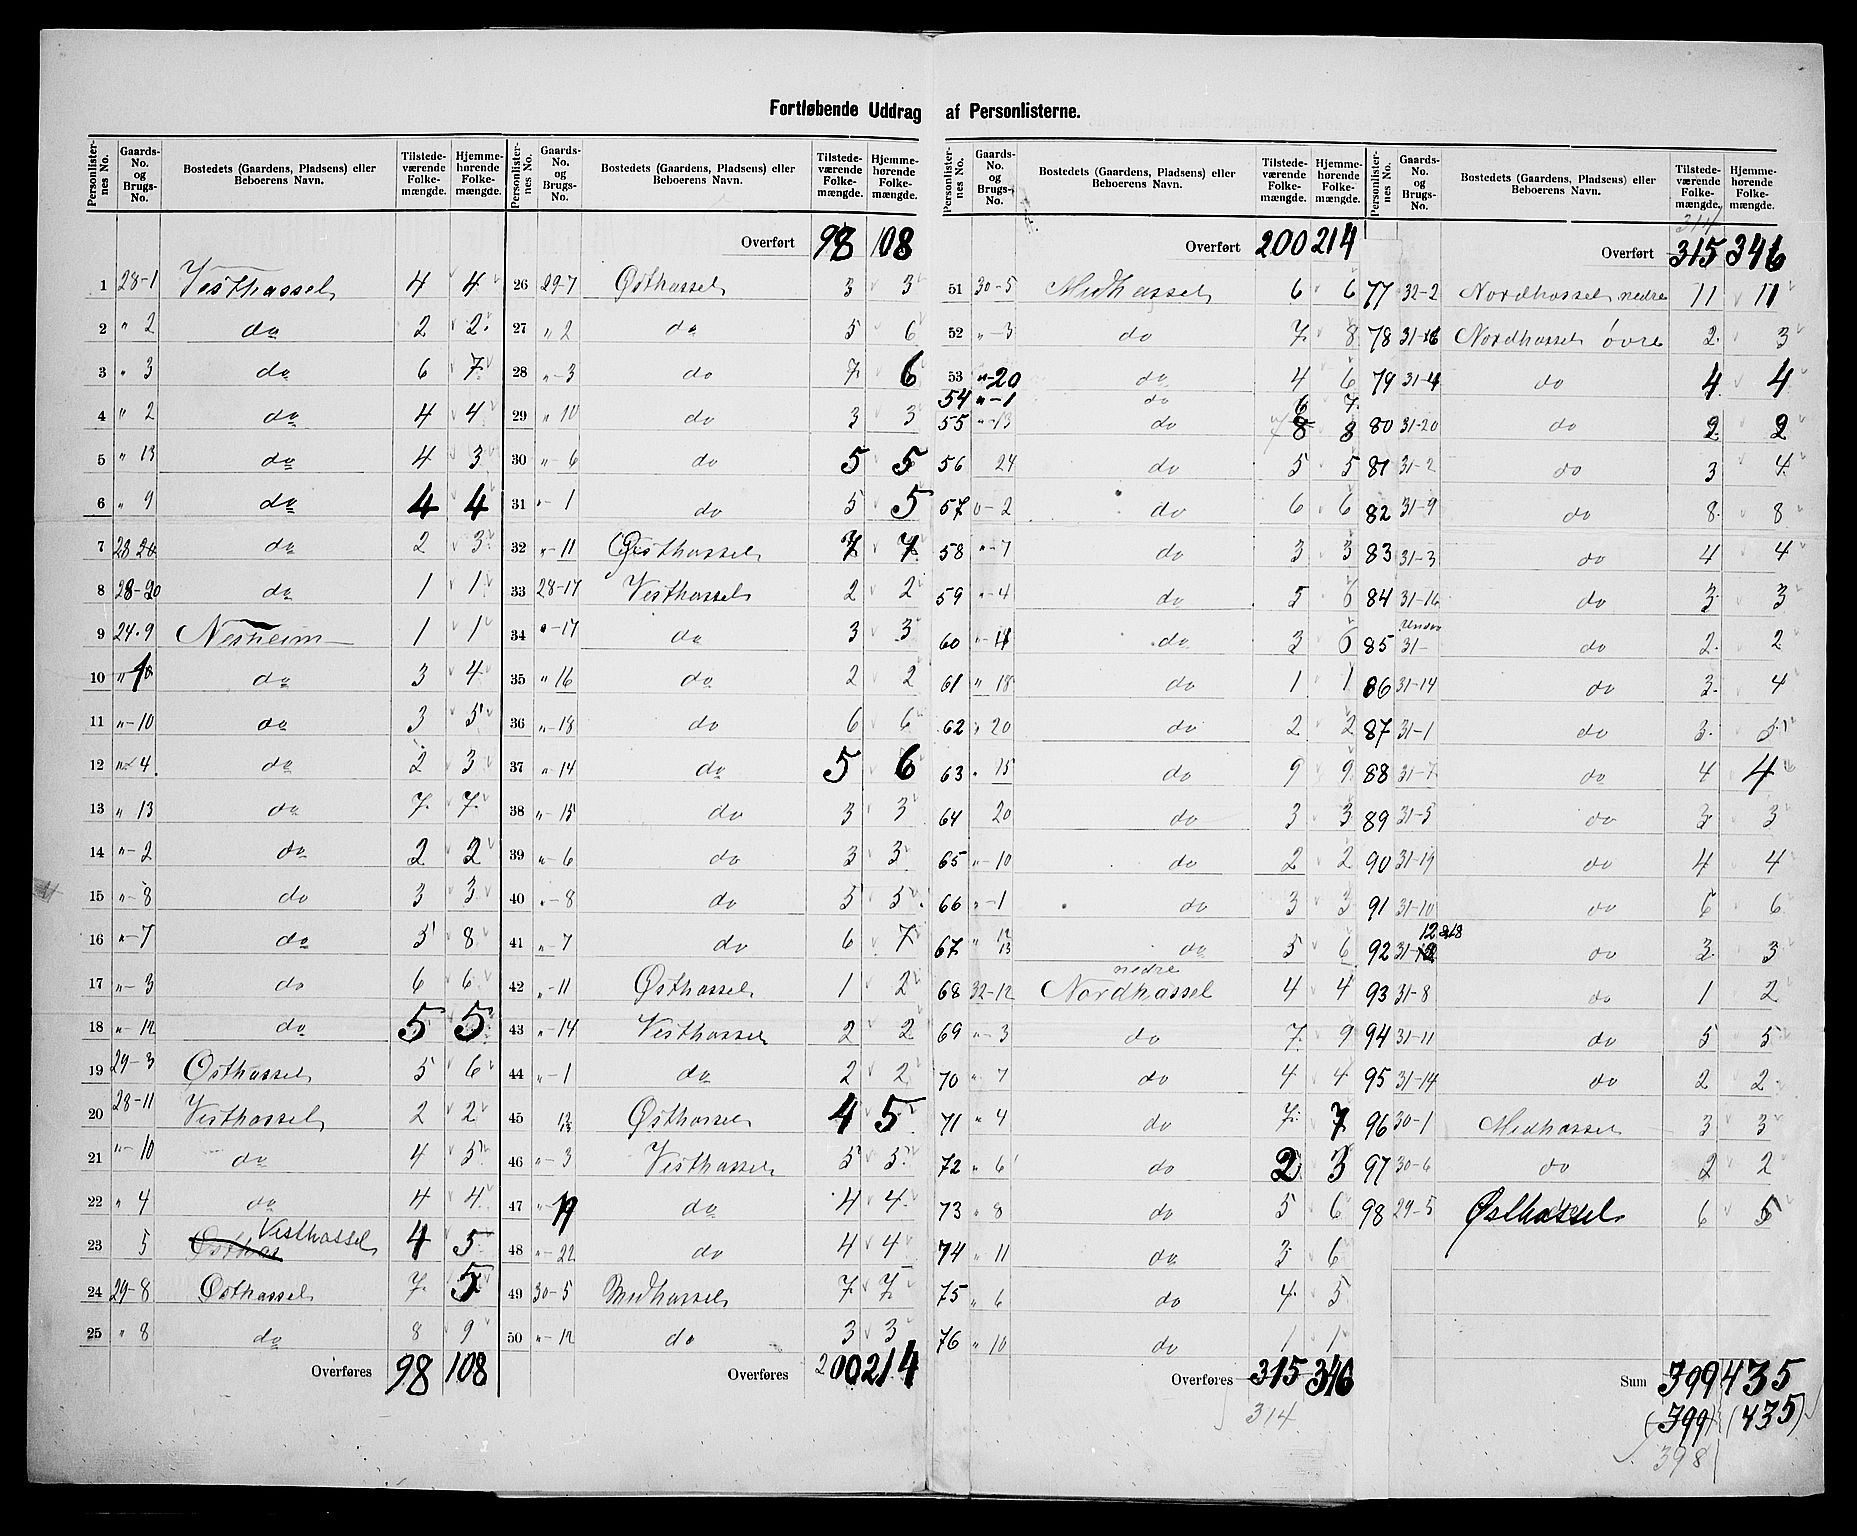 Fortløbende Uddrag af Personlisterne.
Personlisternes No. Gaards-No. og Brugs-No. Bostedets (Gaardens, Pladsens) eller Beboerens Navn. Tilstedeværende Folkemængde. Hjemmehørende Folkemængde.
1 28-1 Vesthassel 4 4
2 " 2 do 2 2
3 " 3 do 6 7
4 " 2 do 4 4
5 " 13 do 4 3
6 " 9 do 4 4
7 28 20 do 2 3
8 28-20 do 1 1
9 24-9 Nesheim 1 1
10 do 3 4
11 "-10 do 3 5
12 "-4 do 2 3
13 " 13 do 7 7
14 "-2 do 2 2
15 "-8 do 3 3
16 "-7 do 5 8
17 "-3 do 6 6
18 "-12 do 5 5
19 29-3 Østhassel 5 6
20 28-11 Vesthassel 2 2
21 "-10 do 4 5
22 " 4 do 4 4
23 5 Vesthassel 4 5
24 29-8 Østhassel 7 5
25 " 8 do 8 9
Overføres 98 108
Personlisternes No. Gaards-No. og Brugs-No. Bostedets (Gaardens, Pladsens) eller Beboerens Navn. Tilstedeværende Folkemængde. Hjemmehørende Folkemængde.
Overført 98 108
26 29-7 Østhassel 3 3
27 " 2 do 5 6
28 "-3 do 7 6
29 " 10 do 3 3
30 "-6 do 5 5
31 "-1 do 5 5
32 "-11 Østhassel 7 7
33 28-17 Vesthassel 2 2
34 "-17 do 3 3
35 " 16 do 2 2
36 "-18 do 6 6
37 "-14 do 5 6
38 "-15 do 3 3
39 "-6 do 3 3
40 "-8 do 5 5
41 "-7 do 6 7
42 "-11 Østhassel 1 2
43 "-14 Vesthassel 2 2
44 "-1 do 2 2
45 Østhassel 4 5
46 "-3 Vesthassel 5 5
47 do 4 4
48 "-22 do 4 4
49 30-5 Midhassel 7 7
50 "-12 do 3 3
Overføres 200 214
Personlisternes No. Gaards-No. og Brugs-No. Bostedets (Gaardens, Pladsens) eller Beboerens Navn. Tilstedeværende Folkemængde. Hjemmehørende Folkemængde.
Overført 200 214
51 30-5 Midhassel 6 6
52 "-3 do 7 8
53 "-20 do 4 6
54 "-1 do 6 7
55 "-13 do 8 8
56 24 do 5 5
57 0-2 do 6 6
58 "-7 do 3 3
59 "-4 do 5 6
60 do 3 6
61 " 18 do 1 1
62 " 20 do 2 2
63 " 15 do 9 9
64 20 do 3 3
65 "-10 do 2 2
66 "-1 do 3 3
67 " 12 13 do 5 6
68 32-12 Nordhassel nedre 4 4
69 "-3 do 7 9
70 " 7 do 4 4
71 " 4 do 7 7
72 " 6 do 2 3
73 " 8 do 5 6
74 " 11 do 3 6
75 " 6 do 4 5
76 " 10 do 1 1
Overføres 315 346
314
Personlisternes No. Gaards-No. og Brugs-No. Bostedets (Gaardens, Pladsens) eller Beboerens Navn. Tilstedeværende Folkemængde. Hjemmehørende Folkemængde.
314
Overført 315 346
77 32-2 Nordhassel nedre 11 11
78 Nordhassel øvre 2 3
79 31-4 do 4 4
80 31-20 do 2 2
81 31-2 do 3 4
82 31-9 do 8 8
83 31-3 do 4 4
84 31-16 do 3 3
85 Under 31- do 2 2
86 31-14 do 3 4
87 31-1 do 3 5
88 31-7 do 4 4
89 31-5 do 3 3
90 31-19 do 4 4
91 31-10 do 6 6
92 do 3 3
93 31-8 do 1 2
94 31-11 do 5 5
95 31-14 do 2 2
96 30-1 Midhassel 3 3
97 30-6 do 2 2
98 29-5 Østhassel 6 5
Sum 399 435
(399) (435)
398